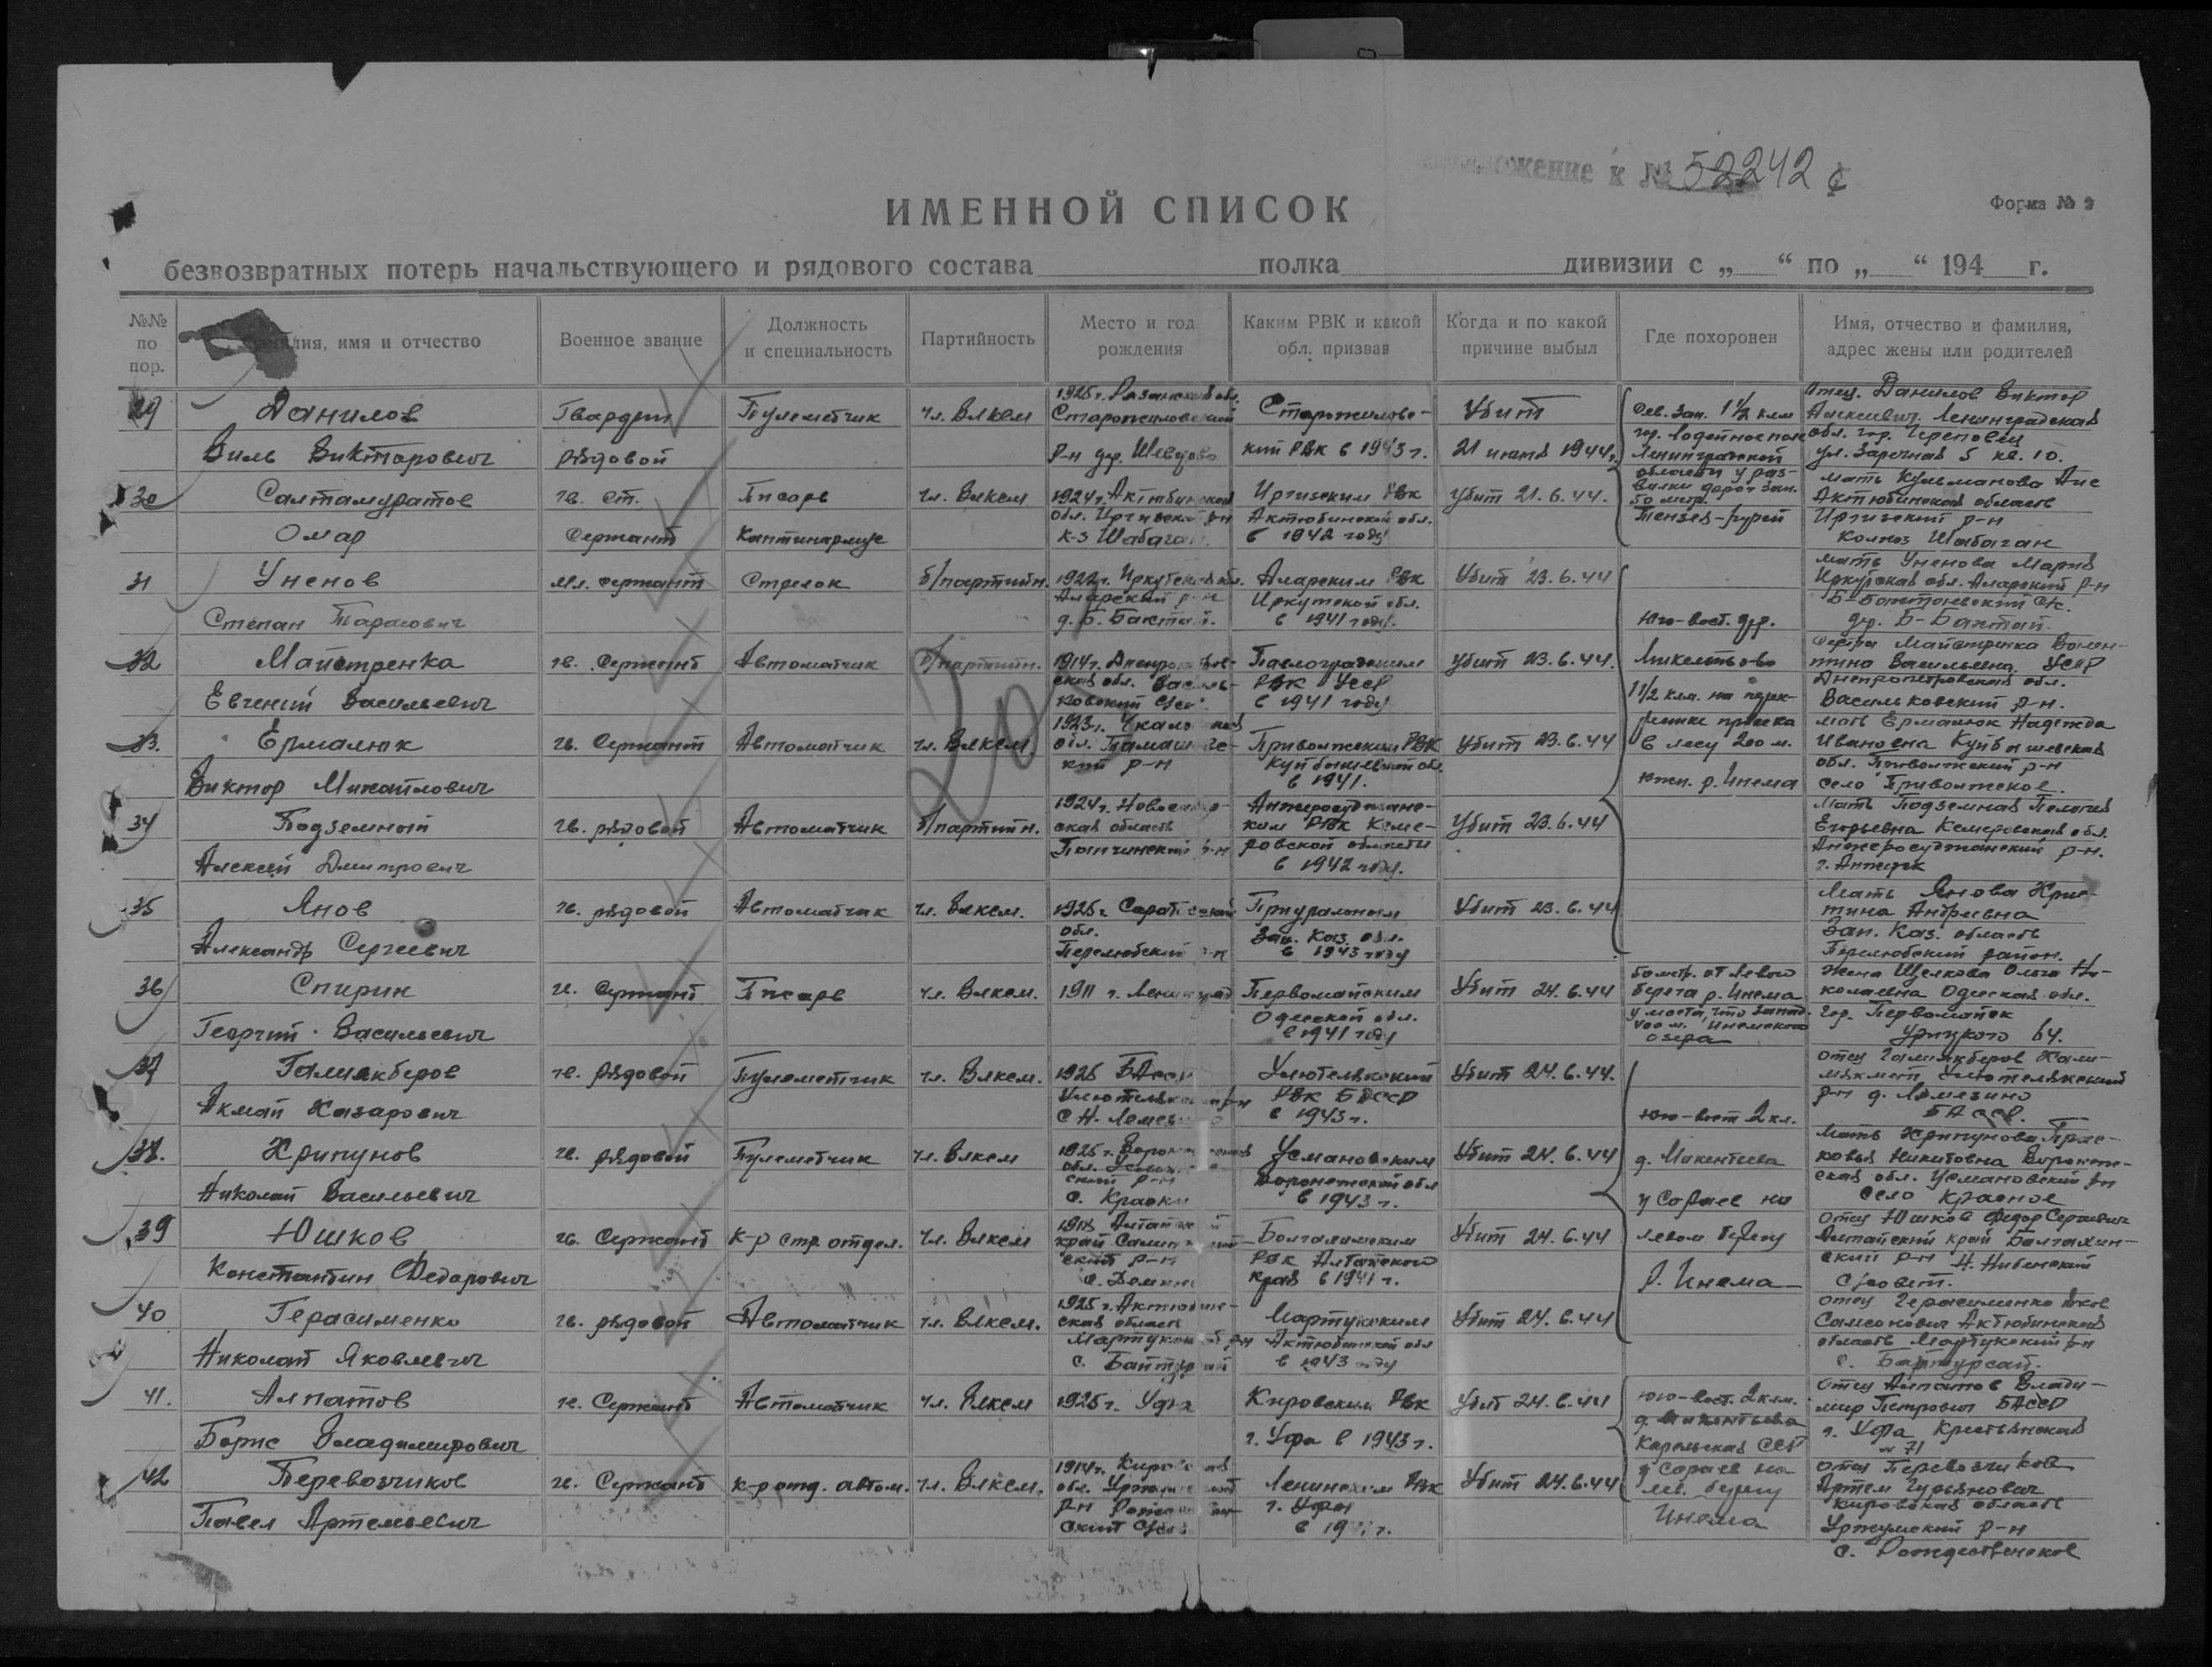 к № 52242 с
ИМЕННОЙ СПИСОК
Форма № 2
безвозвратных потерь начальствующего и рядового состава полка дивизии с „ “ по „ “ 194 г.
№№ по пор.
фамилия, имя и отчество
Военное звание
Должность и специальность
Партийность
Место и год рождения
Каким РВК и какой обл. призван
Когда и по какой причине выбыл
Где похоронен
Имя, отчество и фамилия, адрес жены или родителей
29 Данилов Гвардии Пулеметчик чл. Влксм 1925 г. Рязанская обл. Старожиловский Старожиловс- Убит Сев. зап. 1 1/2 клм Отец. Данилов Виктор
Виль Викторович рядовой р-н дер. кий РВК в 1943 г. 21 июня 1944 г. Ленинградской обл. гор. Череповец ул. Заречная 5 кв. 10.
30 Салтамуратов гв. ст. Писарь чл. Влксм 1924 г. Актюбинская Иргизским РВК убит 21.6.44. области у раз- вилки дорог зап. 50 метр. мать Кульманова Актюбинская область
Омар Сержант Каптинармус обл. Иргизский р-н к-з Шабаган Актюбинской обл. в 1942 году Иргизский р-н Колхоз Шабаган
31 Уненов мл. сержант Стрелок б/партийн. 1922 г. Иркутская обл. Аларский р-н Аларским РВК Убит 23.6.44 мать Уненова Мария Иркутская обл. Аларский р-н
Степан Тарасович д. Б. Бактай. Иркутской обл. в 1941 году. Юго-вост. дер. дер. Б-Бактай.
32 Майстренка гв. Сержант Автоматчик б/партийн. 1914 г. Днепропетров- ская обл. Василь- Павлоградским убит 23.6.44. сестра Майстренка Вален- тина Васильевна. УССР
Евгений Васильевич ковский с/сов. РВК УССР в 1941 году 1 1/2 клм. на Днепропетровская обл. Васильковский р-н.
33. Ермалюк гв. Сержант Автоматчик чл. Влксм. 1923 г. Чкаловская обл. Приволжским РВК Убит 23.6.44 в лесу 200 м. мать Ермалюк Надежда Ивановна Куйбышевская
Виктор Михайлович кий р-н Куйбышевской обл. в 1941. южн. р. Инема обл. Приволжский р-н село Приволжское.
34 Подземный гв. рядовой Автоматчик б/партийн. 1924 г. Новосибир- ская область Анжеросуджанс- ким РВК Кеме- Убит 23.6.44 Мать Подземная Пелагия Егорьевна Кемеровская обл.
Алексей Дмитрович р-н ровской области в 1942 году. Анжеросуджанский р-н.
35 Янов гв. рядовой Автоматчик чл. Влксм. 1925 г. Саратовская обл. Приуральным Убит 23.6.44 Мать Янова Хрис- тина Андреевна
Александр Сергеевич Перелюбский р-н Зап. Каз. обл. в 1943 году Зап. Каз. область Перелюбский район.
36 Спирин гв. Сержант Писарь чл. Влксм. 1911 г. Ленинград Первомайским Убит 24.6.44 от левого берега р. Инема Жена Щелкова Ольга Ни- колаевна Одесская обл.
Георгий Васильевич Одесской обл. в 1941 году у моста, что запад. 400 м. Инемского озера гор. Первомайск Урицкого 64.
37 Галиакберов гв. рядовой Пулеметчик чл. Влксм. 1925 БАССР Улютелякский Убит 24.6.44.
Акмай Хазарович РВК БАССР в 1943 г. Юго-вост 2 кл. р-н д. Ломезино БАССР.
38. Хрипунов гв. рядовой Пулеметчик чл. Влксм 1925 г. Воронежская обл. Усмановским Убит 24.6.44 д. Микентьева Мать Хрипунова Прас- ковья Никитовна Воронеж-
Николай Васильевич р-н с. Воронежской обл в 1943 г. у Сараев на ская обл. Усмановский р-н село Красное
39 Юшков гв. Сержант к-р стр. отдел. чл. Влксм край Убит 24.6.44 левом берегу отец Юшков Федор Сергеевич Алтайский край
Константин Федорович ский р-н РВК Алтайского края в 1941 г. р. Инема ский р-н с/совет.
40 Герасименко гв. рядовой Автоматчик чл. Влксм. 1925 г. Актюбин- ская область Мартукским Убит 24.6.44 отец Герасименко Яков Самсонович Актюбинская
Николай Яковлевич Мартукский р-н Актюбинской обл в 1943 году область Мартукский р-н с. Байтурсай.
41. Алпатов гв. Сержант Автоматчик чл. Влксм 1925 г. Уфа Кировским РВК Убит 24.6.44 юго-вост. 2 клм. д. Микентьева отец Алпатов Влади- мир Петрович БАССР
Борис Владимирович г. Уфа в 1943 г. Карельская ССР г. Уфа Крестьянская № 71
42 Перевозчиков гв. Сержант к-р отд. автом. чл. Влксм. 1914 г. Кировская обл. Ленинским РВК Убит 24.6.44 у сараев на лев. берегу отец Перевозчиков Артем Гурьянович
Павел Артемьевич р-н г. Уфа Инема Кировская область Уржумский р-н
с. Рождественское